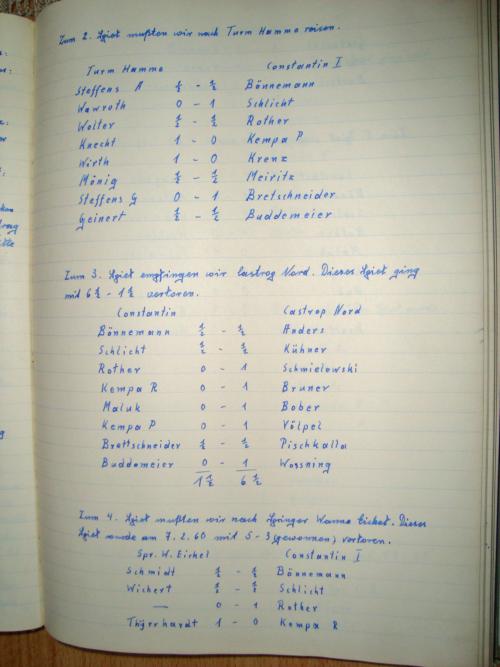 Zum 2. Spiel mußten wir nach Turm Hamme reisen.
Turm Hamme Constantin I
Steffens A ½ - ½ Bönnemann
Wawroth 0 - 1 Schlicht
Wolter ½ - ½ Rother
Knecht 1 - 0 Kempa P
Wirth 1 - 0 Krenz
Mönig ½ - ½ Meiritz
Steffens G 0 - 1 Bretschneider
Geinert ½ - ½ Buddemeier
Zum 3. Spiel empfingen wir Castrop Nord. Dieses Spiel ging
mit 6½ - 1½ verloren.
Constantin Castrop Nord
Bönnemann ½ - ½ Anders
Schlicht ½ - ½ Kühner
Rother 0 - 1 Schmielowski
Kempa R 0 - 1 Bruner
Maluk 0 - 1 Bober
Kempa P 0 - 1 Völpel
Brettschneider ½ - ½ Pischkalla
Buddemeier 0 - 1 Wossning
1½ 6½
Zum 4. Spiel mußten wir nach Springer Wanne Eickel. Dieses
Spiel wurde am 7.2.60 mit 5 - 3 (gewonnen) verloren.
Spr. W. Eickel Constantin I
Schmidt ½ - ½ Bönnemann
Wichert ½ - ½ Schlicht
— 0 - 1 Rother
1 - 0 Kempa R